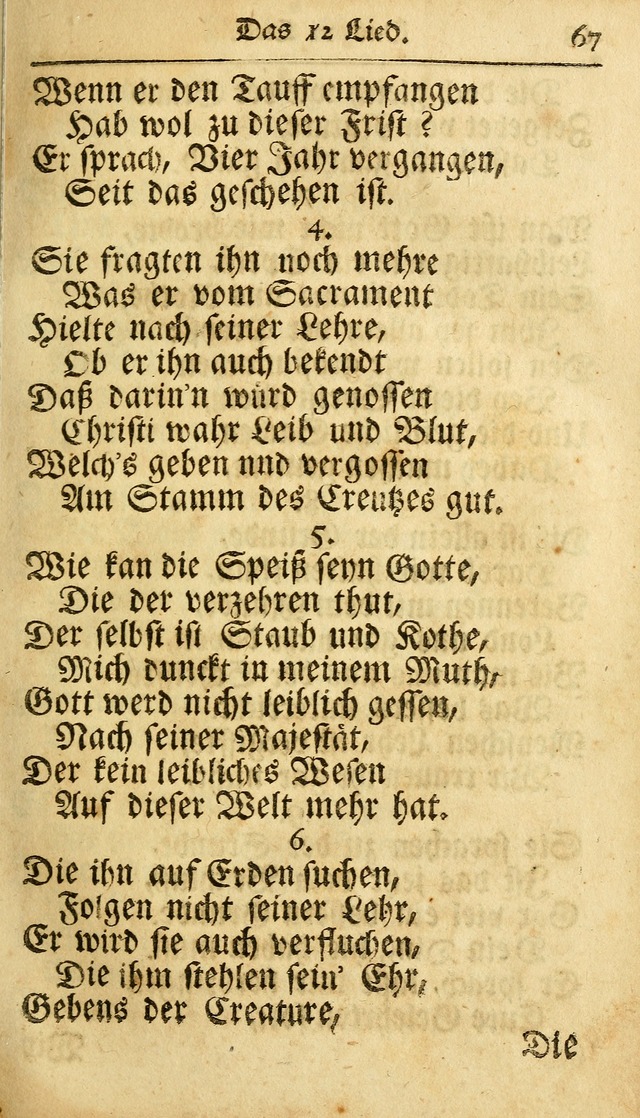 Das 12 Lied. 67
Wenn er den Tauff empfangen
Hab wol zu dieser Frist ?
Er sprach, Vier Jahr vergangen,
Seit das geschehen ist.
4.
Sie fragten ihn noch mehre
Was er vom Sacrament
Hielte nach seiner Lehre,
Ob er ihn auch bekendt
Daß darin'n würd genossen
Christi wahr Leib und Blut,
Welch's geben und vergossen
Am Stamm des Creutzes gut.
5.
Wie kan die Speiß seyn Gotte,
Die der verzehren thut,
Der selbst ist Staub und Kothe,
Mich dunckt in meinem Muth,
Gott werd nicht leiblich gessen,
Nach seiner Majestät,
Der kein leibliches Wesen
Auf dieser Welt mehr hat.
6.
Die ihn auf Erden suchen,
Folgen nicht seiner Lehr,
Er wird sie auch verfluchen,
Die ihm stehlen sein' Ehr,
Gebens der Creature,
Die